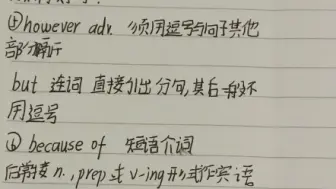 ④however adv. 须用逗号与句子其他
部分隔开
but 连词 直接引出分句,其后一般不
用逗号
① because of 短语介词
后常接 n., prep 或 v-ing 形式作宾语